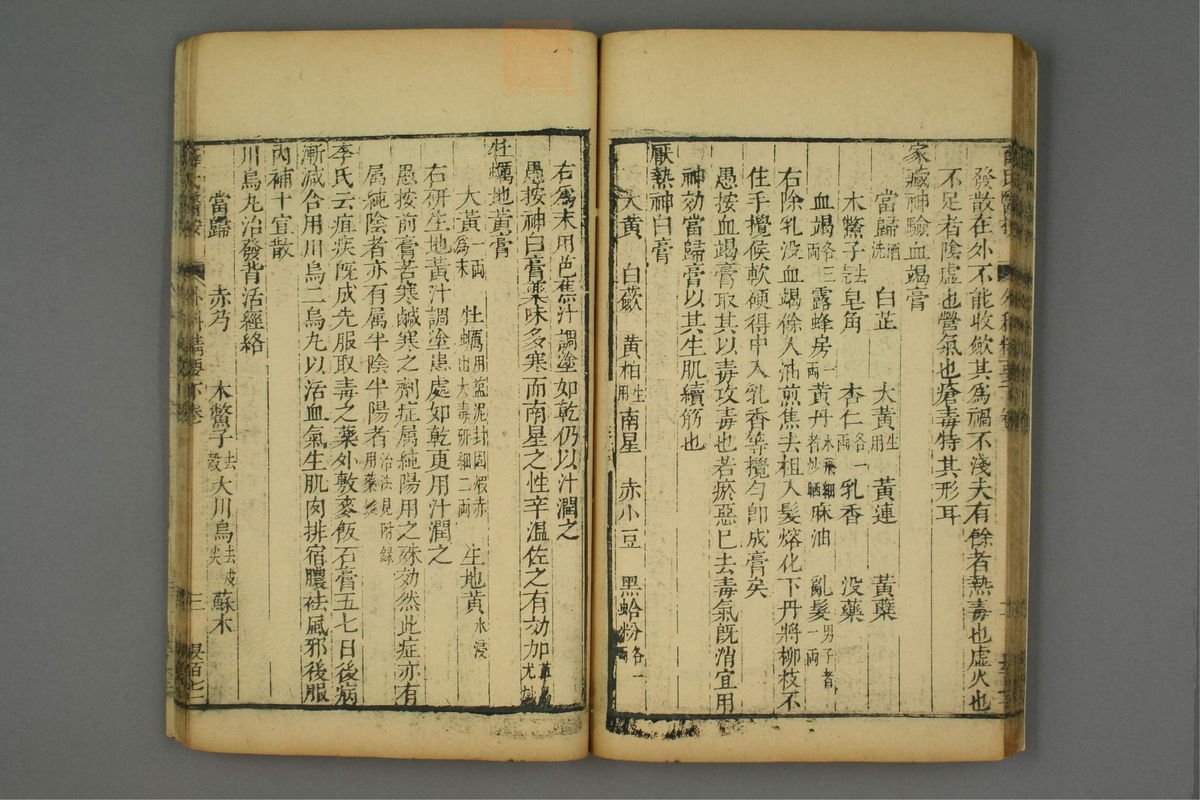 發散在外不能收斂其爲禍不淺夫有餘者熱毒也虛火也
不足者陰虛也營氣也瘡毒特其形耳
家藏神驗血竭膏
當歸酒洗 白芷 大黃生用 黃連 黃蘗
木鱉子去壳 皂角 杏仁各一兩 乳香 没藥
血竭各三兩 露蜂房一兩 黃丹水飛細者炒晒 麻油 亂髮男子者一兩
右除乳没血竭餘入油煎焦去柤入髮熔化下丹將柳枝不
住手攪候軟硬得中入乳香等攪勻即成膏矣
愚按血竭膏取其以毒攻毒也若瘀惡已去毒氣既消宜用
神効當歸膏以其生肌續筋也
厭熱神白膏
大黃 白蘞 黃柏生用 南星 赤小豆 黑蛤粉各一兩
右爲末用芭蕉汁調塗如乾仍以汁潤之
愚按神白膏藥味多寒而南星之性辛溫佐之有効加草烏尤妙
牡蠣地黃膏
大黃一兩爲末 牡蠣用鹽泥封固煅赤出火毒研細二兩 生地黃水浸
右研生地黃汁調塗患處如乾更用汁潤之
愚按前膏苦寒鹹寒之劑症属純陽用之殊効然此症亦有
属純陰者亦有属半陰半陽者治法見附録用藥
李氏云疽疾既成先服取毒之藥外敷麥飯石膏五七日後病
漸減合用川烏二烏丸以活血氣生肌肉排宿膿祛風邪後服
內補十宣散
川烏丸治發背活經絡
當歸 赤芍 木鱉子去殼 大川烏去皮尖 蘇木